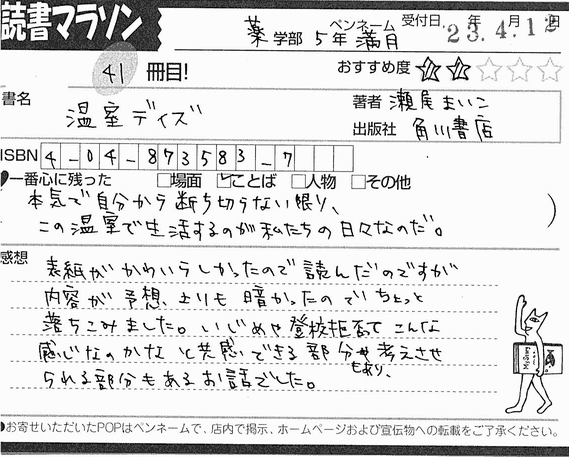 読書マラソン
薬学部 5年 ペンネーム 満月 受付日 23年4月12日
41 冊目! おすすめ度 ★★☆☆☆
書名 温室デイズ
著者 瀬尾まいこ
出版社 角川書店
ISBN 4-04-873583-7
一番心に残った □場面 ☑ことば □人物 □その他
本気で自分から断ち切らない限り、
この温室で生活するのが私たちの日々なのだ。
感想
表紙がかわいらしかったので読んだのですが
内容が予想よりも暗かったのでちょっと
落ちこみました。いじめや登校拒否てこんな
感じなのかな と共感できる部分もあり、考えさせ
られる部分もあるお話でした。
●お寄せいただいたPOPはペンネームで、店内で掲示、ホームページおよび宣伝物への転載をご了承ください。